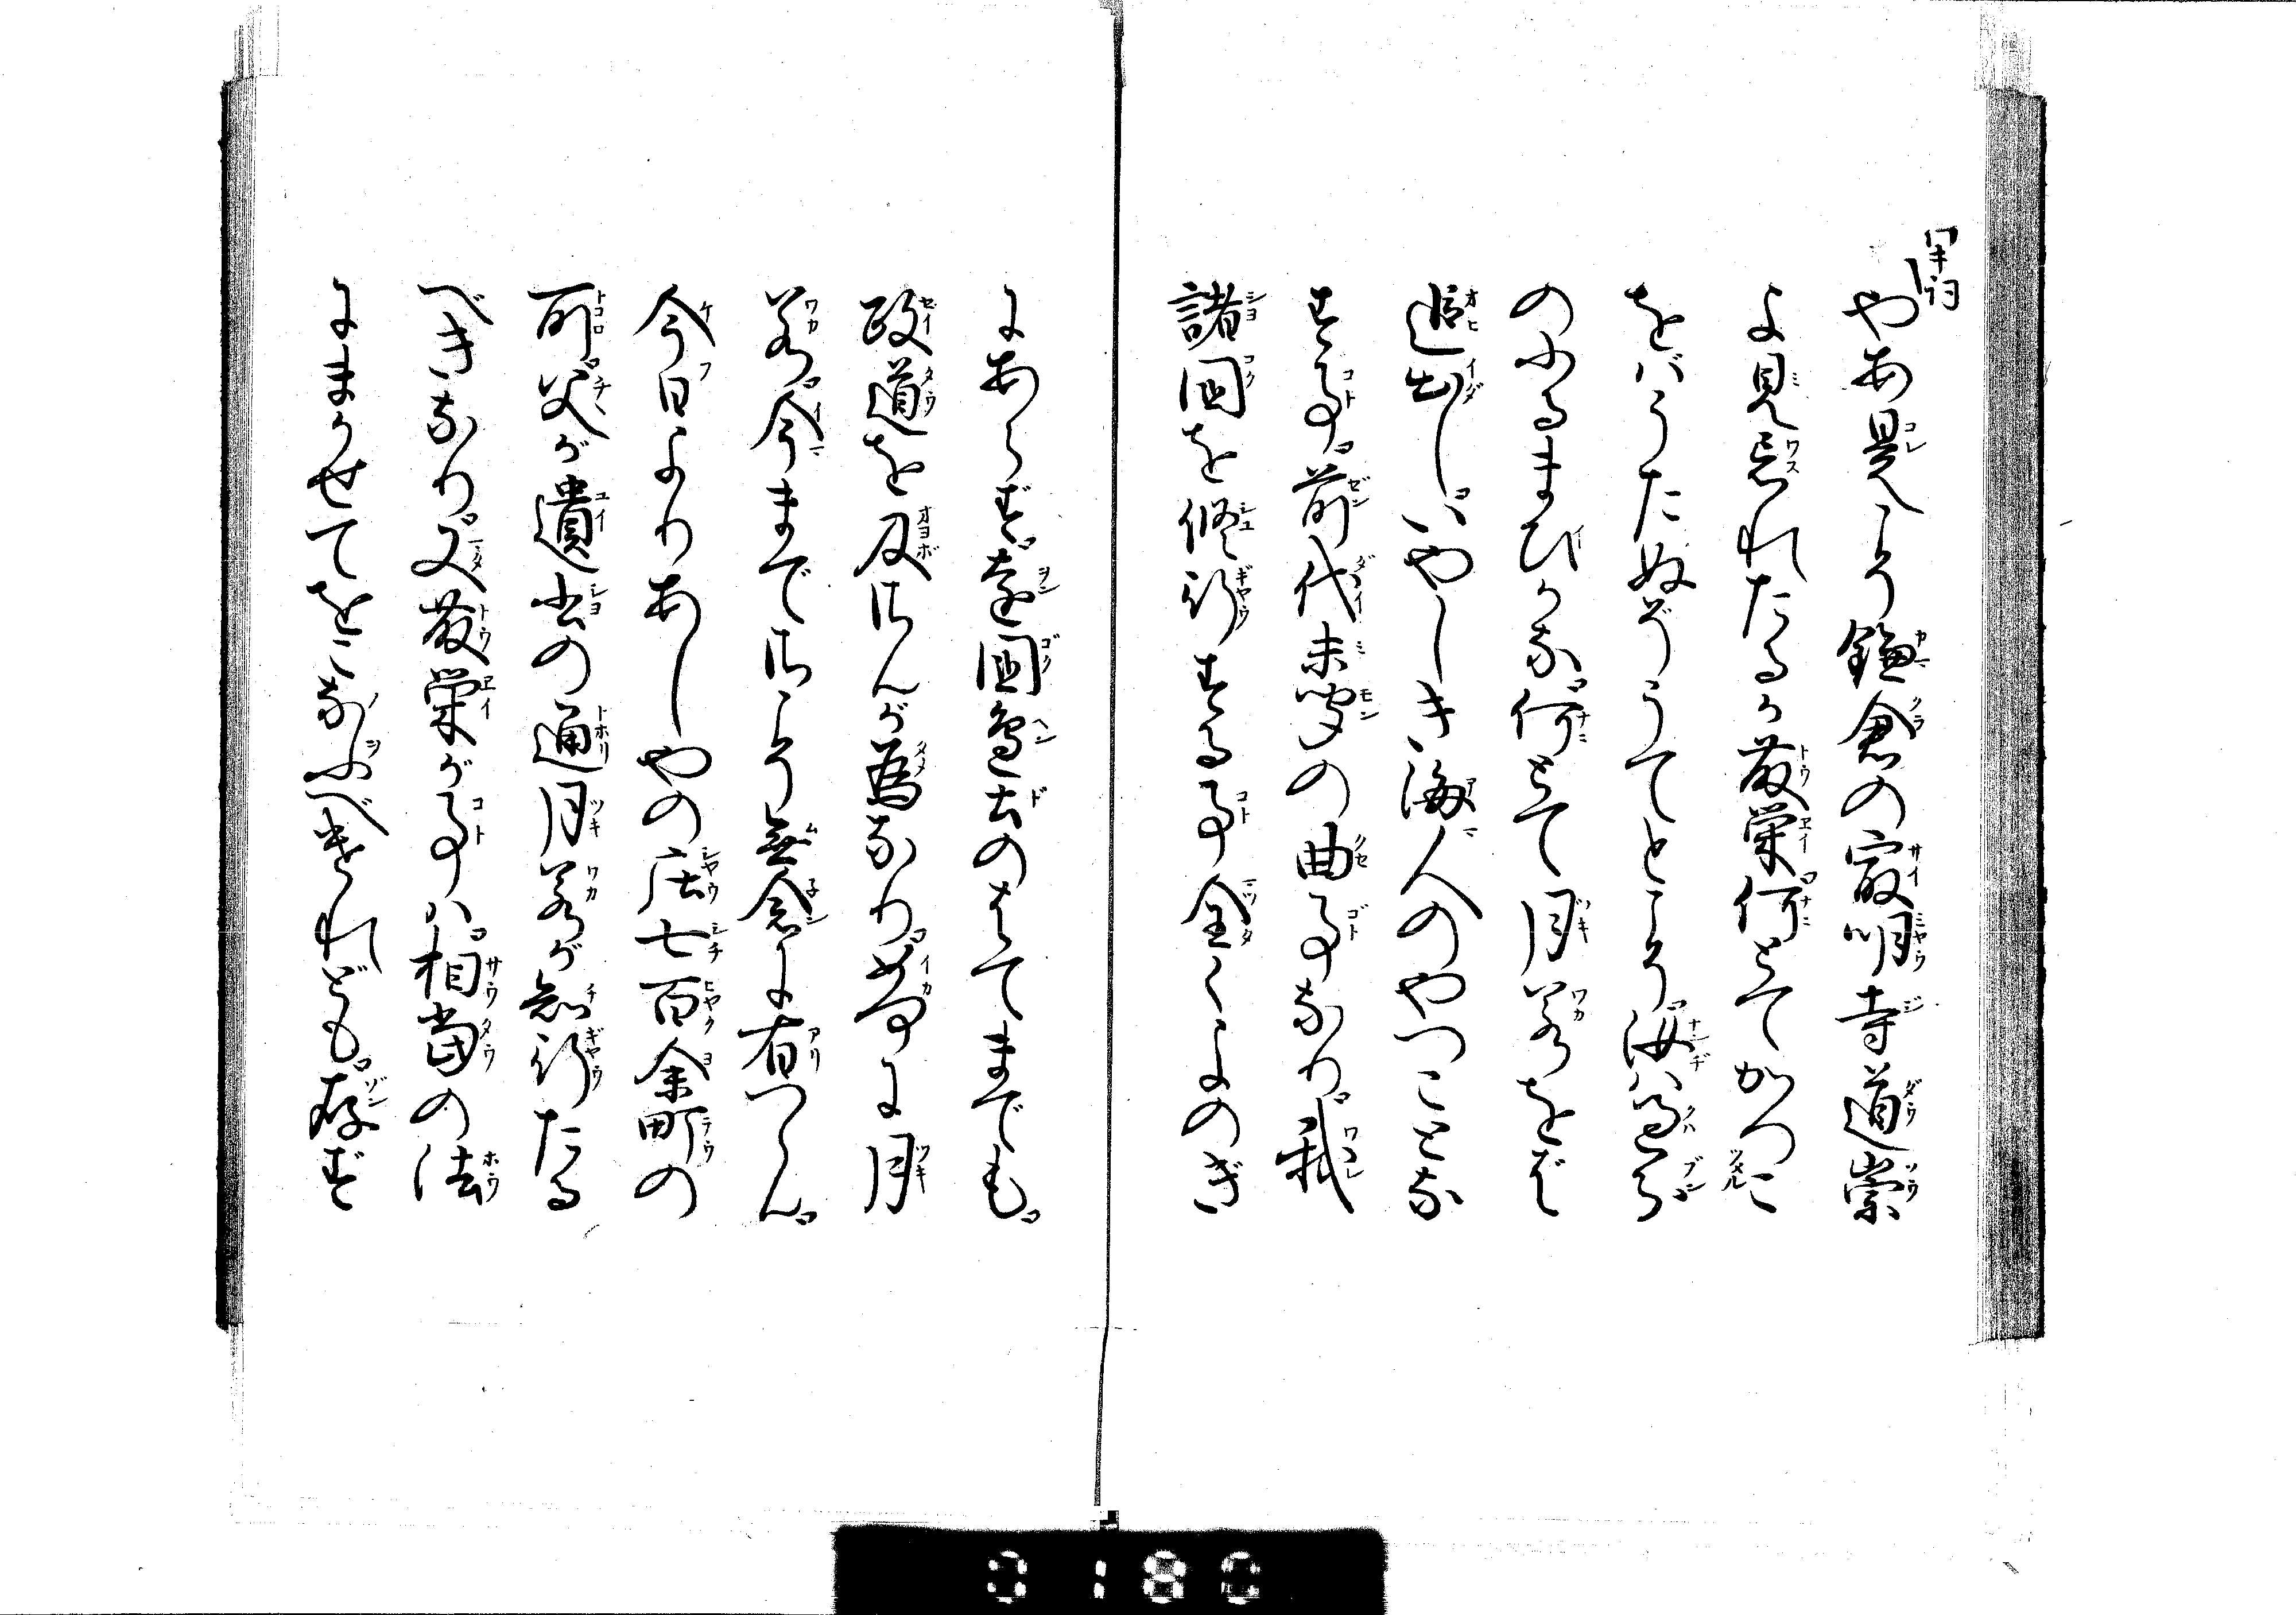 やあ是こそ鎌倉の最明寺道崇
よ見忘れたるか藤栄何とてかつこ
をバうたぬぞうてとこそ汝ハ過分
のふるまひかな何とて月若をば
追出しいやしき海人のやつことな
す事前代未聞の曲事なり我
諸国を修行する事全くよのぎ
にあらず遠国辺土のはてまでも
政道を及ぼさんが為なりいかに月
若今までさこそ無念に有つらん
今日よりあしやの庄七百余町の
所父が遺書の通月若が知行たる
べきなり又藤栄が事ハ相当の法
にまかせてをこなふべけれども存ず
0180